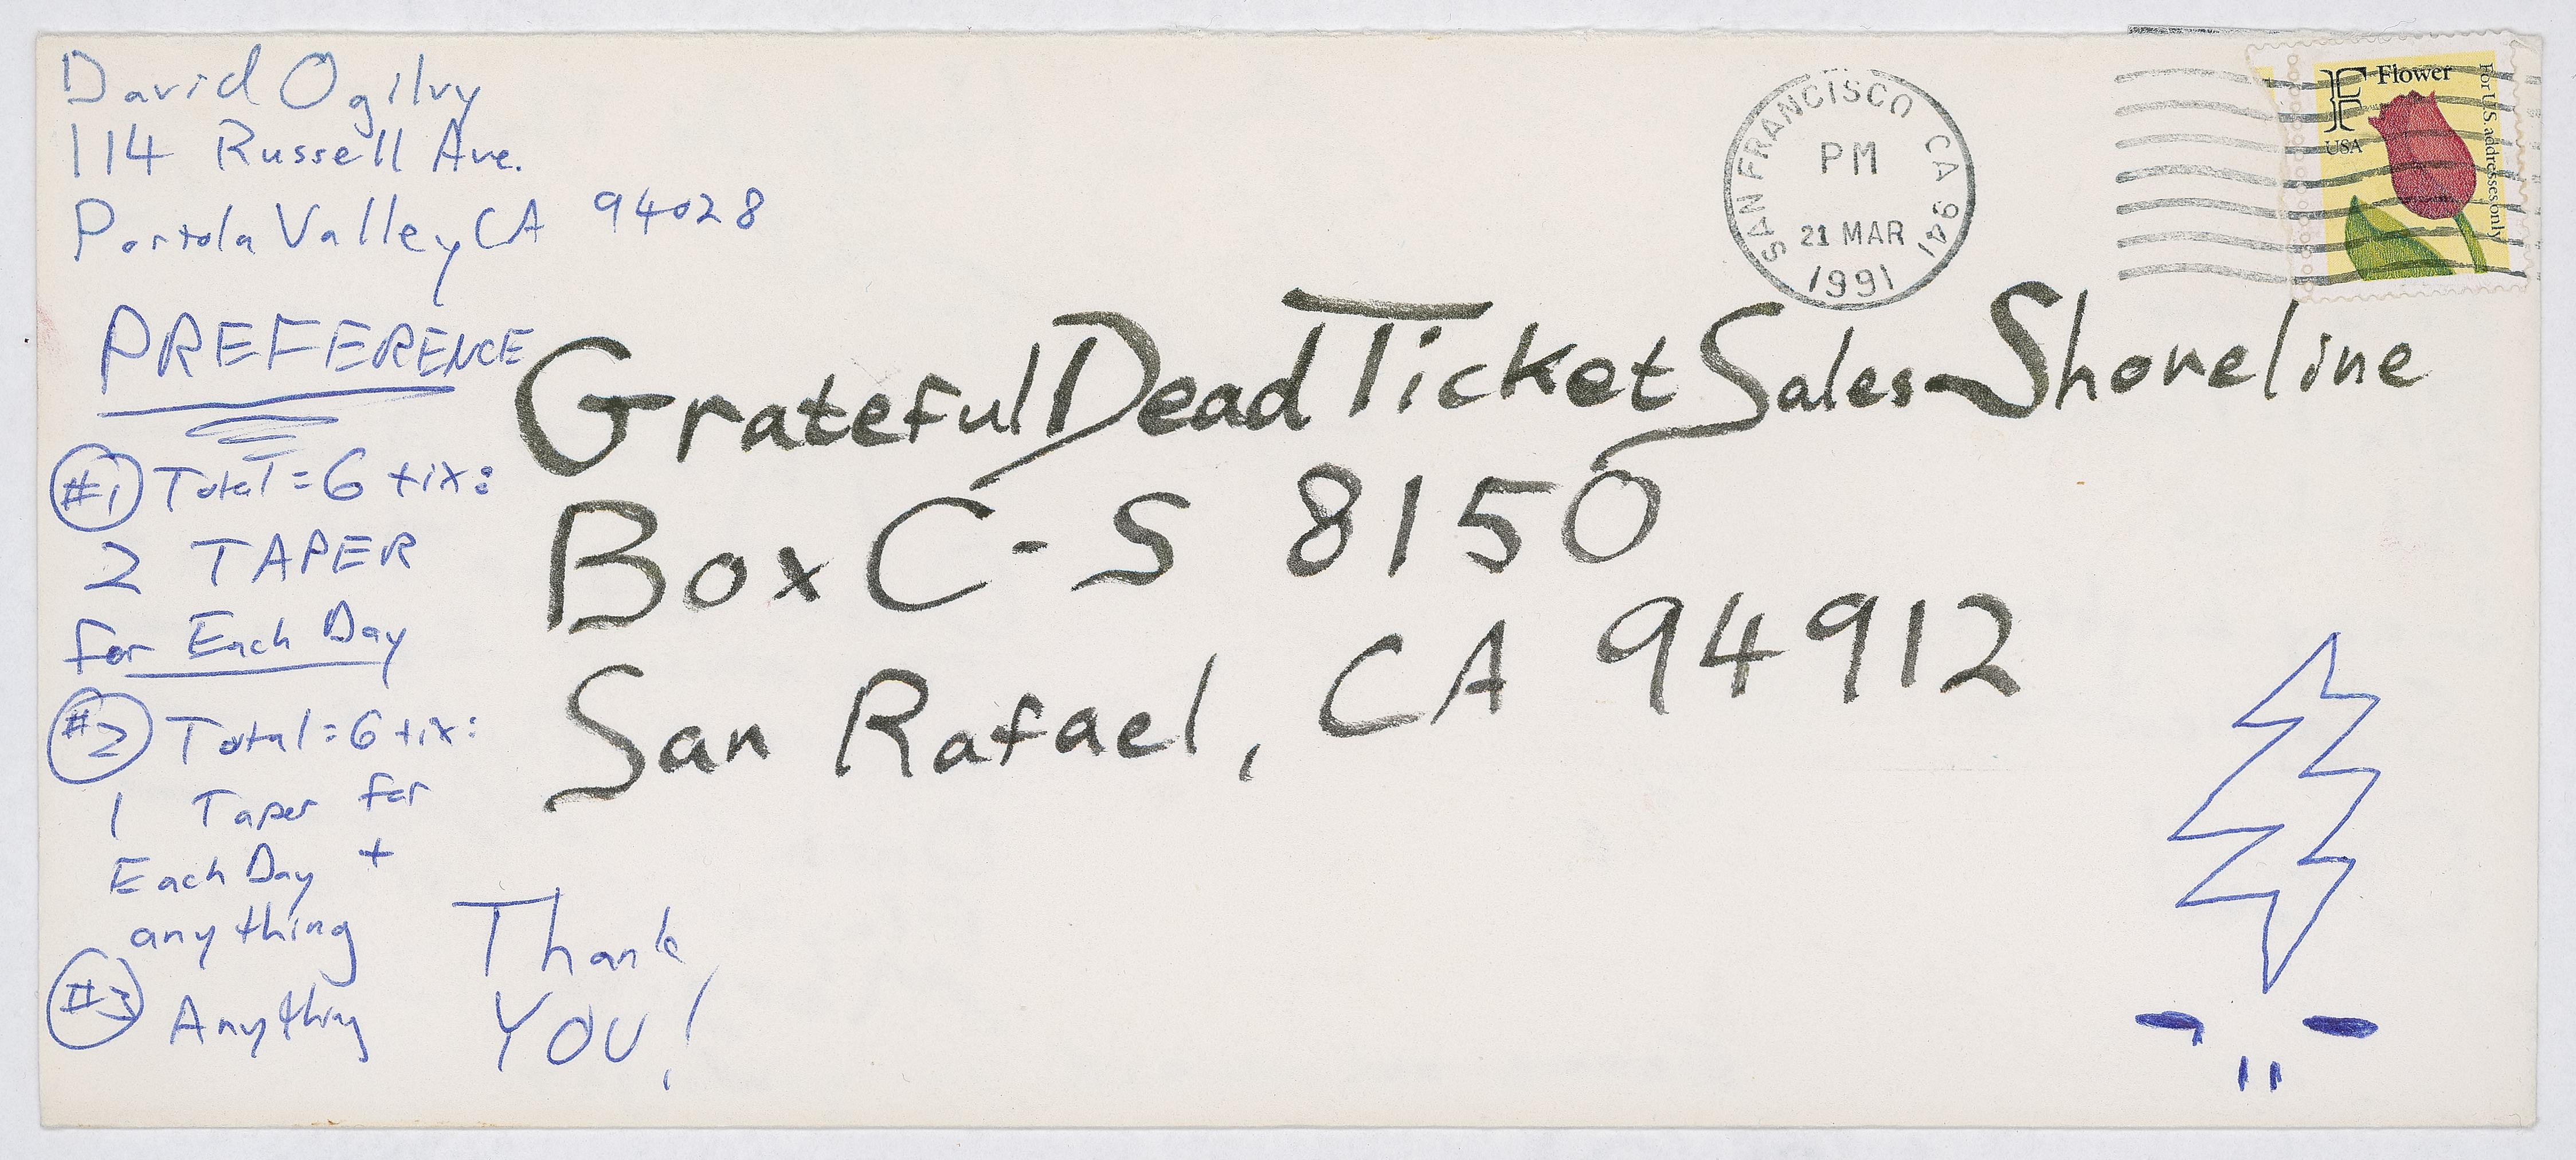 David Ogilvy
114 Russell Ave.
Portola Valley CA 94028
PREFERENCE
#1 Total = 6 tix:
2 TAPER
for Each Day
#2 Total = 6 tix:
1 Taper for
Each Day +
anything
#3 Anything
Thank
YOU!
Grateful Dead Ticket Sales-Shoreline
Box C-S 8150
San Rafael, CA 94912
SAN FRANCISCO CA 941
PM
21 MAR
1991
F Flower
USA
For U.S. addresses only